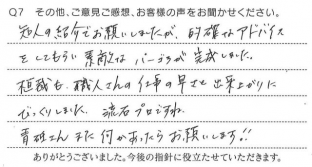 Q7 その他、ご意見ご感想、お客様の声をお聞かせください。
知人の紹介でお願いしましたが、的確なアドバイス
をしてもらい素敵なパーゴラが完成しました。
植栽も、職人さんの仕事の早さと出来上がりに
びっくりしました。流石プロですね。
また何かあったらお願いします!!
ありがとうございました。今後の指針に役立たせていただきます。